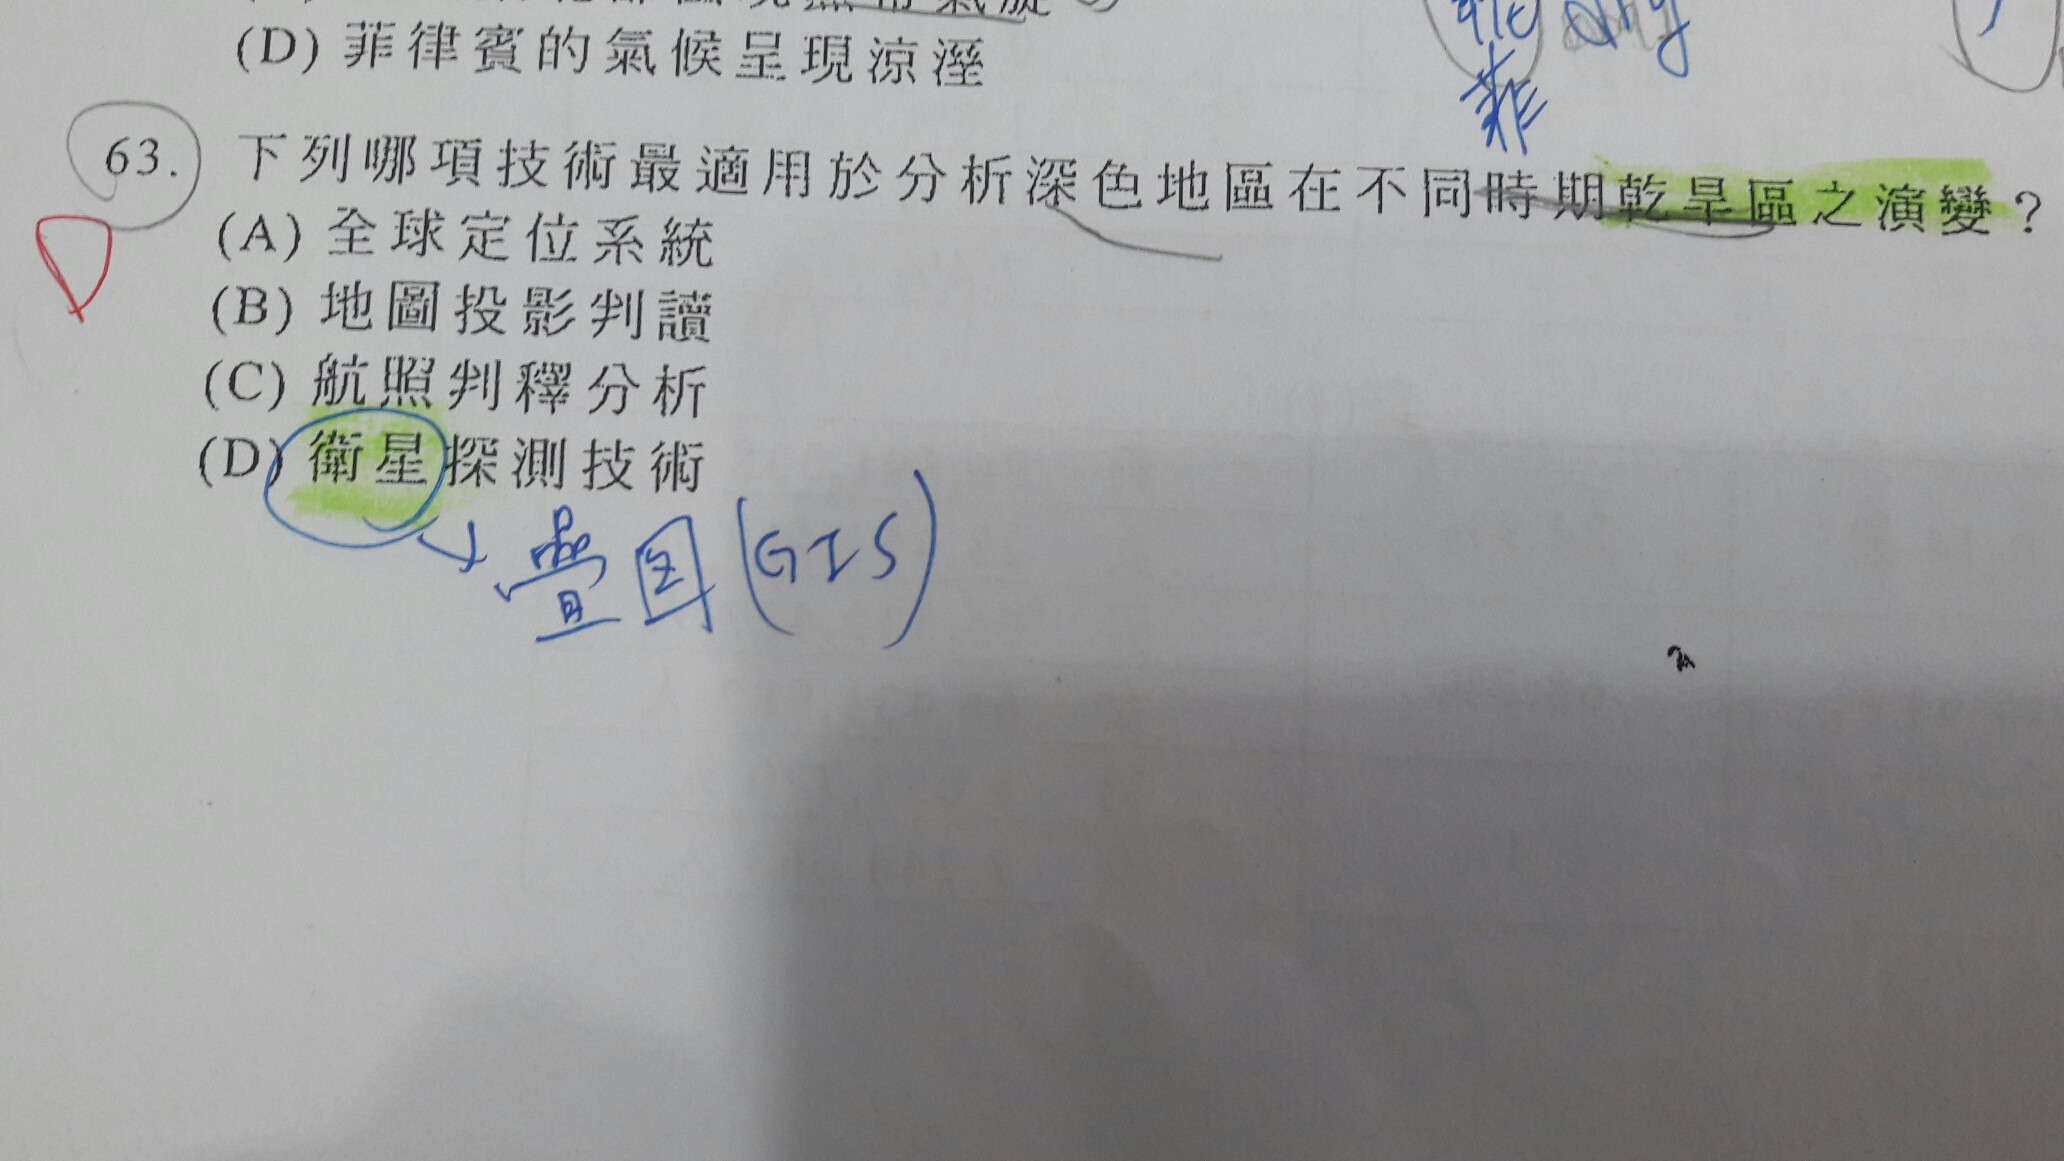 (D) 菲律賓的氣候呈現涼溼
菲
63. 下列哪項技術最適用於分析深色地區在不同時期乾旱區之演變？
(A) 全球定位系統
(B) 地圖投影判讀
(C) 航照判釋分析
(D) 衛星探測技術
疊图 (GIS)